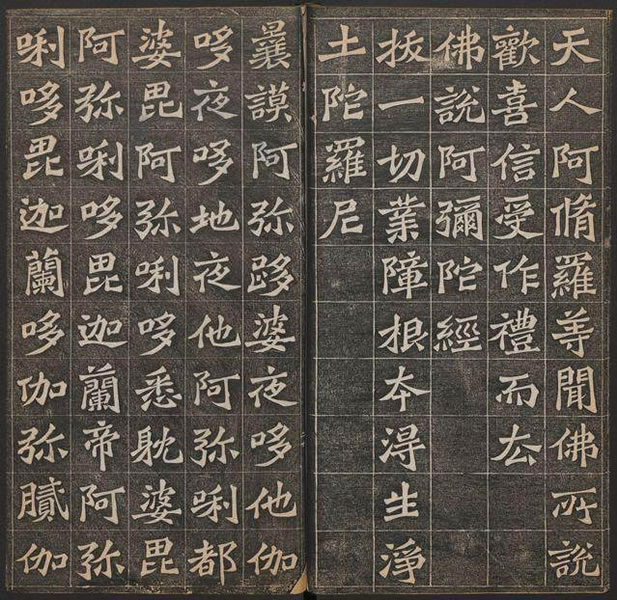 天人阿脩羅等聞佛所說
歡喜信受作禮而去
佛說阿彌陀經
拔一切業障根本得生淨
土陀羅尼
曩謨阿弥跢婆夜哆他伽
哆夜哆地夜他阿弥唎都
婆毘阿弥唎哆悉耽婆毘
阿弥唎哆毘迦蘭帝阿弥
唎哆毘迦蘭哆伽弥膩伽